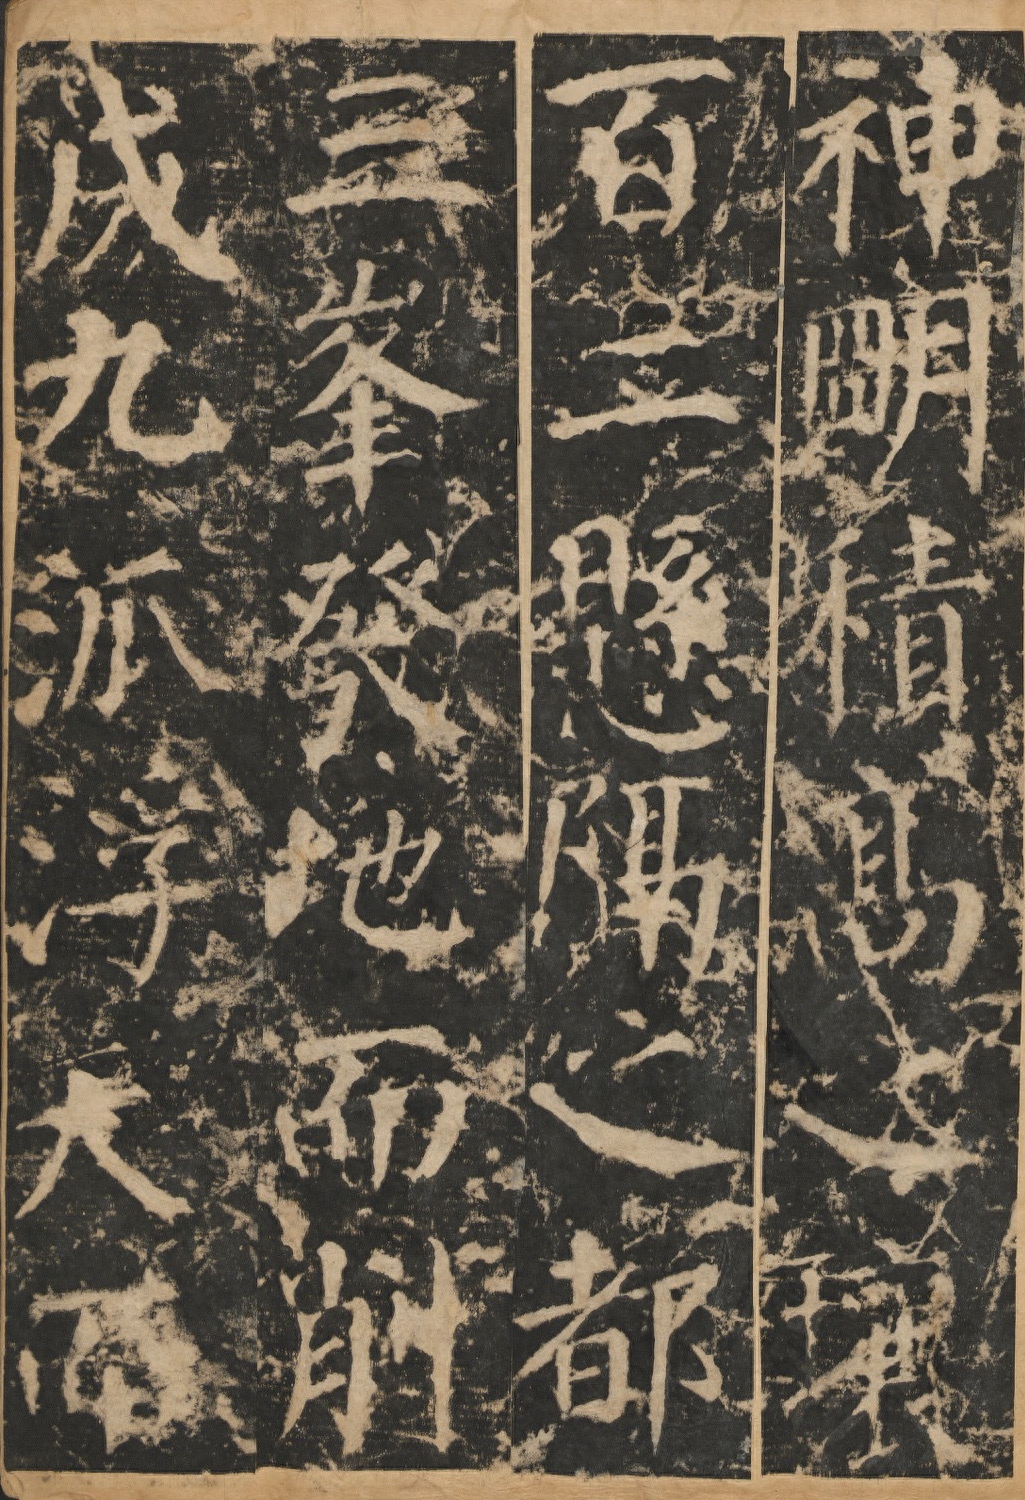 神明積高之壤
百二懸隔之都
三峯發地而削
成九派浮天而